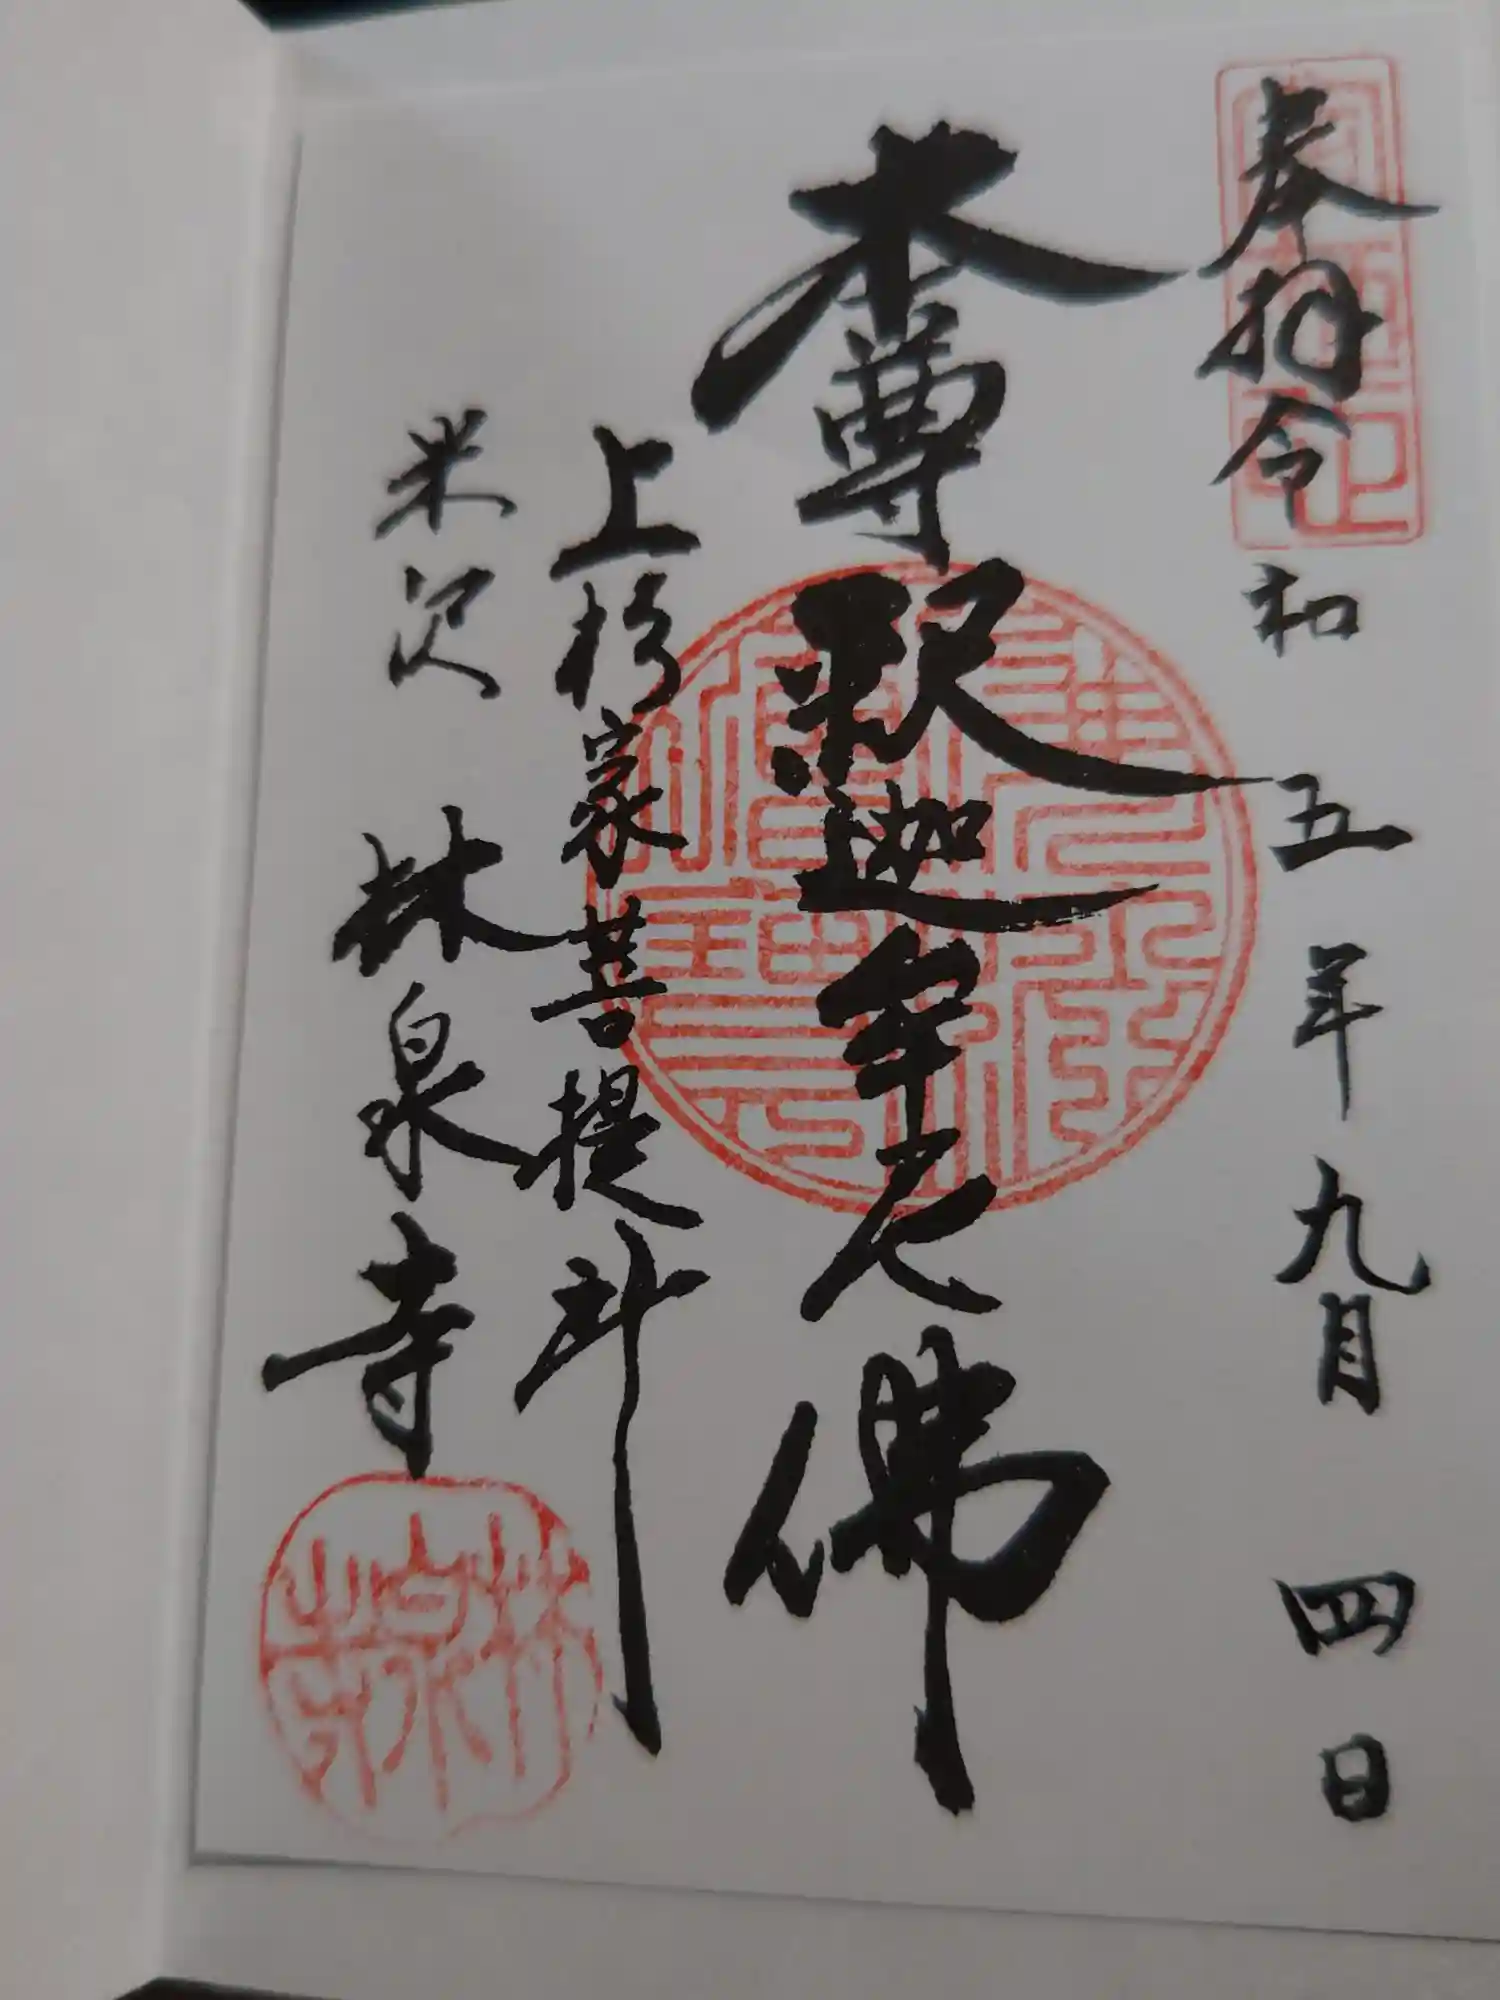 奉拝令和五年九月四日
本尊釈迦牟尼佛
上杉家菩提所
米沢 林泉寺
林泉寺
佛法僧寶